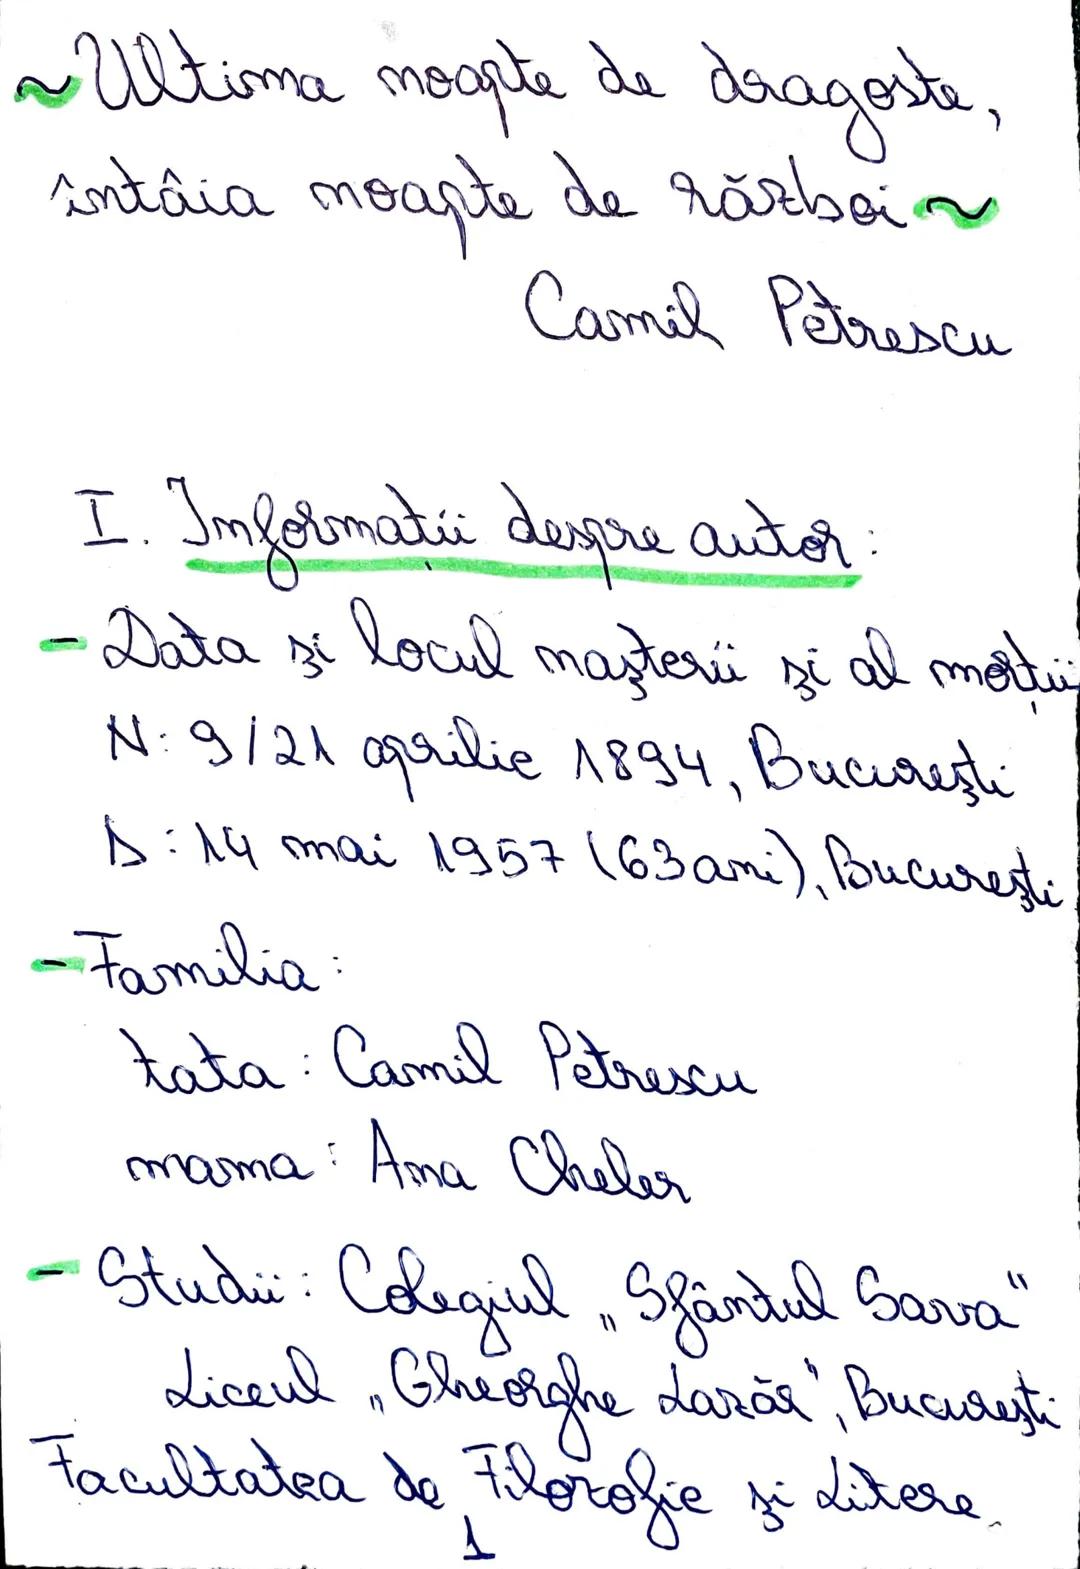 ~Ultima noapte de dragoste,
întâia noapte de război~
Camil Petrescu
I. Informații despre autor:
- Data și locul nașterii și al morții
N: 9/21 aprilie 1894, București
D: 14 mai 1957 (63 ani), București
- Familia:
tata: Camil Petrescu
mama: Ana Cheler
- Studii: Colegiul „Sfântul Sava"
Liceul „Gheorghe Lazăr", București
Facultatea de Filozofie și Litere
1